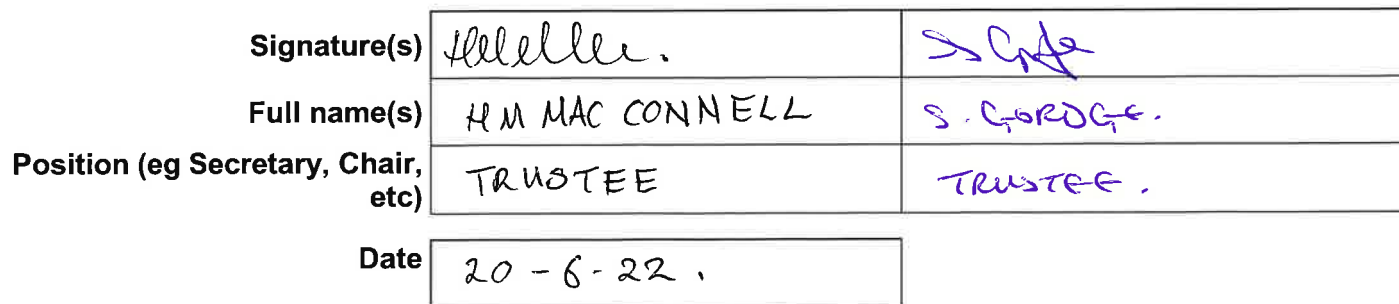 Signature(s)
Full name(s) HM MAC CONNELL S. GORDGE.
Position (eg Secretary, Chair, etc) TRUSTEE TRUSTEE.
Date 20-6-22.